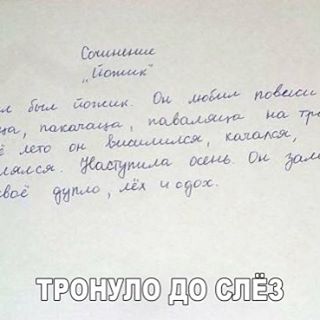 Сочинение
„Йожик"
л был йожик. Он любил повеси
ца, пакачаца, паваляца на тра
ё лето он висилился, качался,
лялся. Наступила осень. Он зале
своё дупло, лёх и одох.
ТРОНУЛО ДО СЛЁЗ